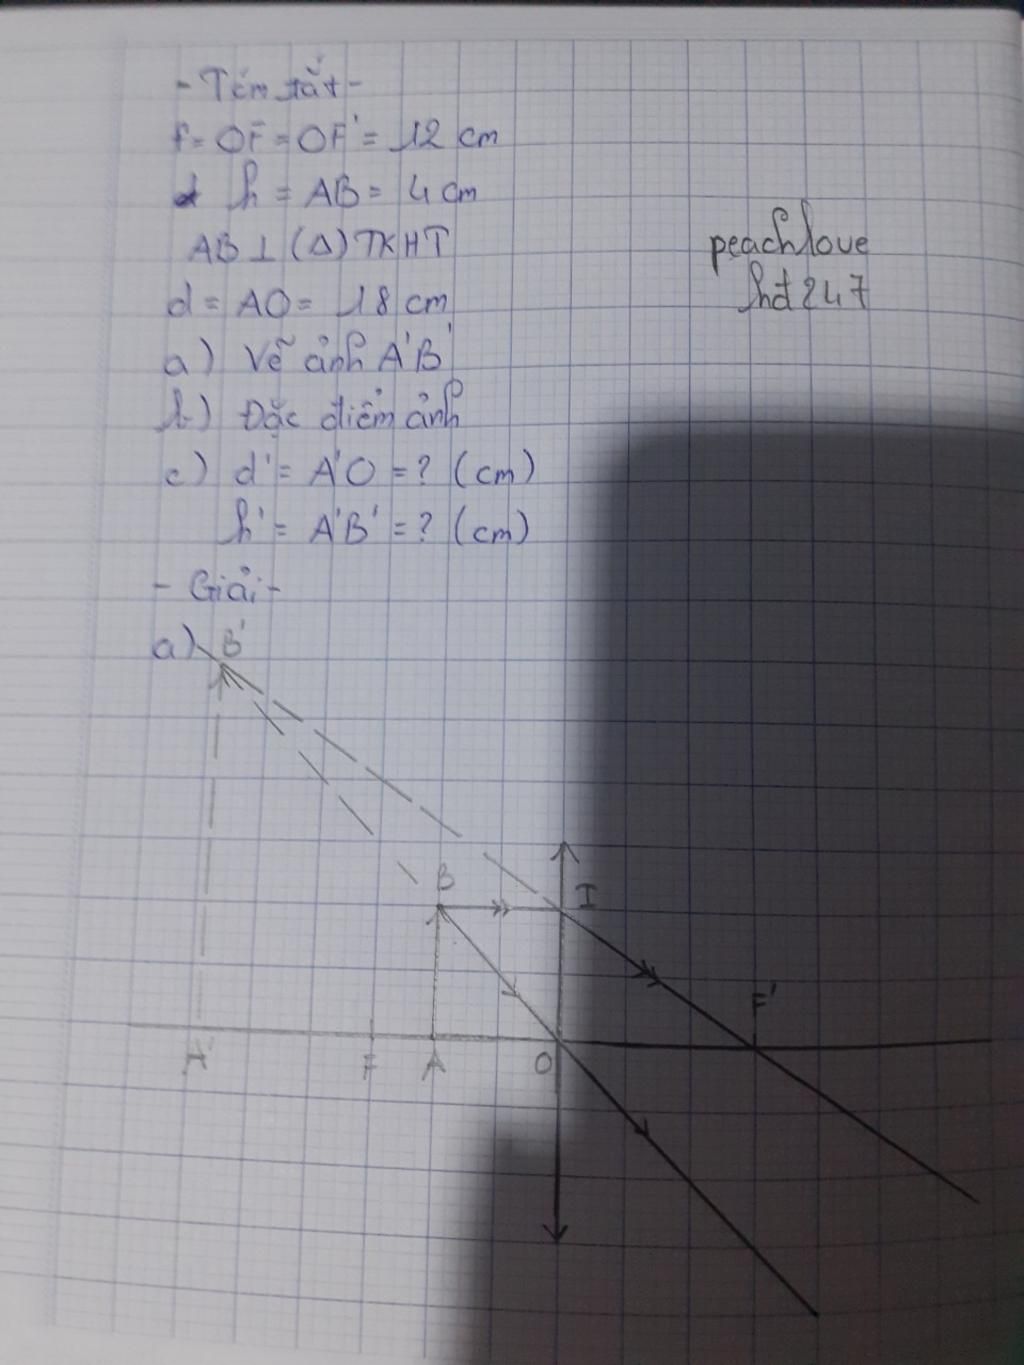 - Tóm tắt -
f = OF = OF' = 12 cm
h = AB = 4 cm
AB ⊥ (Δ) TKHT
d = AO = 18 cm
a) Vẽ ảnh A'B'
b) Đặc điểm ảnh
c) d' = A'O = ? (cm)
h' = A'B' = ? (cm)
- Giải -
a)
peachlove
hđ247
B'
B
I
F'
A'
F
A
O